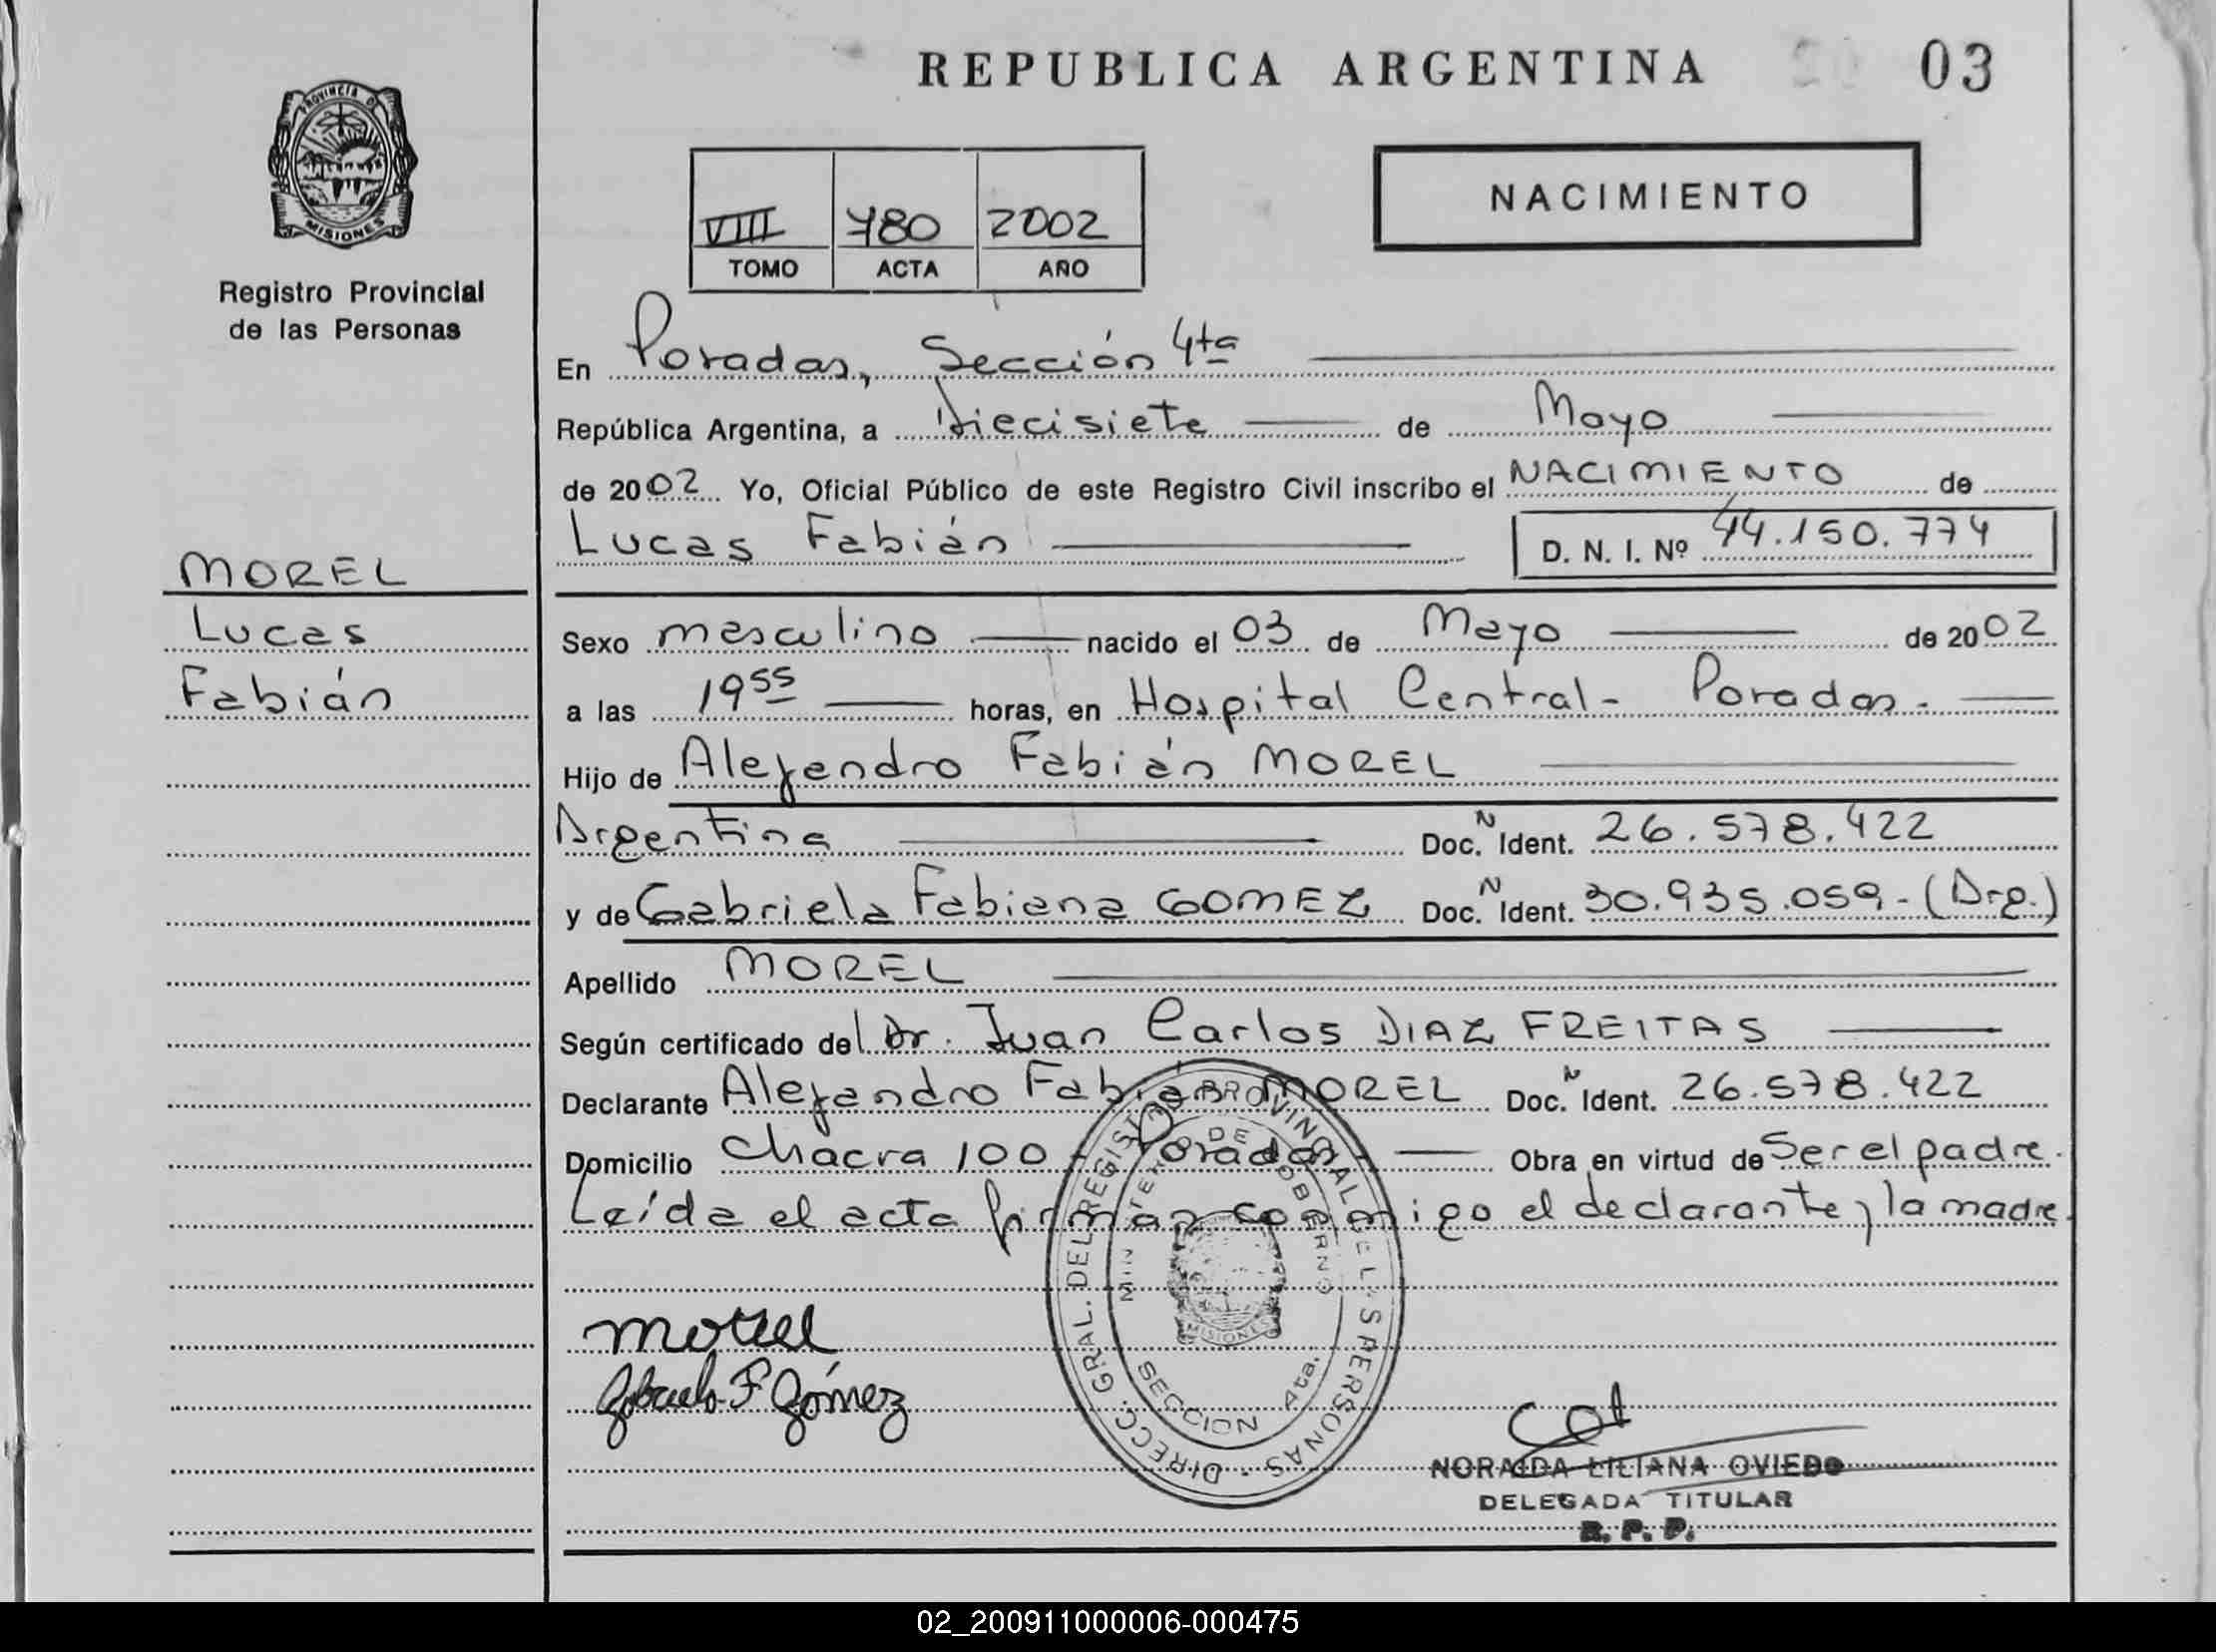 REPUBLICA ARGENTINA
03
PROVINCIA DE
MISIONES
Registro Provincial
de las Personas
NACIMIENTO
VIII 780 2002
TOMO ACTA AÑO
En Posadas, Sección 4ta
República Argentina, a Diecisiete de Mayo
de 2002 Yo, Oficial Público de este Registro Civil inscribo el NACIMIENTO de
Lucas Fabián D. N. I. Nº 44.150.774
MOREL
Lucas
Fabián
Sexo masculino nacido el 03 de Mayo de 2002
a las 19 55 horas, en Hospital Central - Posadas.
Hijo de Alejandro Fabián MOREL
Argentina Doc. N Ident. 26.578.422
y de Gabriela Fabiana GOMEZ Doc. N Ident. 30.935.059 - (Arg.)
Apellido MOREL
Según certificado del Dr. Juan Carlos DIAZ FREITAS
Declarante Alejandro Fabián MOREL Doc. N Ident. 26.578.422
Domicilio Chacra 100 - Posadas - Obra en virtud de Ser el padre.
Leída el acta firman conmigo el declarante y la madre.
DIRECC. GRAL. DEL REGISTRO PROVINCIAL DE LAS PERSONAS
MINISTERIO DE GOBIERNO
MISIONES
SECCION 4ta.
Morel
Gabriela F Gómez
NORAIDA LILIANA OVIEDO
DELEGADA TITULAR
R. P. P.
02_200911000006-000475